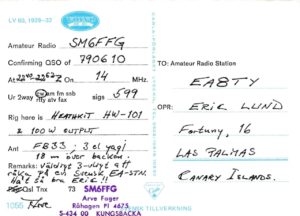 LV 60, 1929-32
Amateur Radio SM6FFG
Confirming QSO of 790610
At 2240-2262 Z On 14 MHz.
Ur 2way cw am fm ssb rtty atv fax sigs 599
Rig here is HEATHKIT HW-101
& 100W OUTPUT
Ant FB33, 3 el yagi
18 m över backen.
Remarks: väldigt att
råka på en Svensk EA-STN.
Ha't så bra Eric!!
QSL Tnx 73
1055 Arve
SM6FFG
Arve Fager
Råhagen Pl 4673
S-434 00 KUNGSBACKA
TO: Amateur Radio Station
EA8TY
OPR: ERIC LUND
Fortuny, 16
LAS PALMAS
CANARY ISLANDS.
SVENSK TILLVERKNING